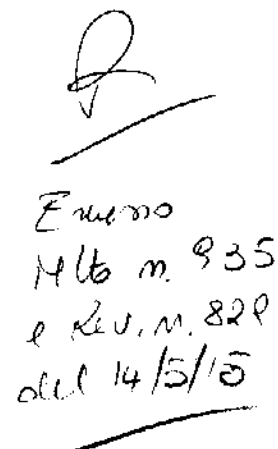 Emesso
Mto n. 935
e Rev. n. 829
del 14/5/15